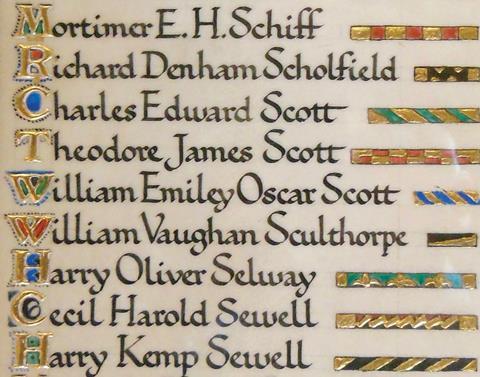 Mortimer E. H. Schiff
Richard Denham Scholfield
Charles Edward Scott
Theodore James Scott
William Emiley Oscar Scott
William Vaughan Sculthorpe
Harry Oliver Selway
Cecil Harold Sewell
Harry Kemp Sewell